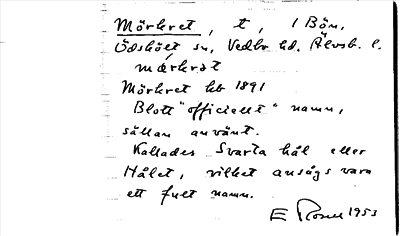 Mörkret, t, 1 Bön,
Ödskölt sn, Vedbo hd. Älvsb. l.
mœrkrət
Mörkret kb 1891
Blott "officiellt" namn,
sällan använt.
Kallades Svarta hål eller
Hålet, vilket ansågs vara
ett fult namn.
E 1953